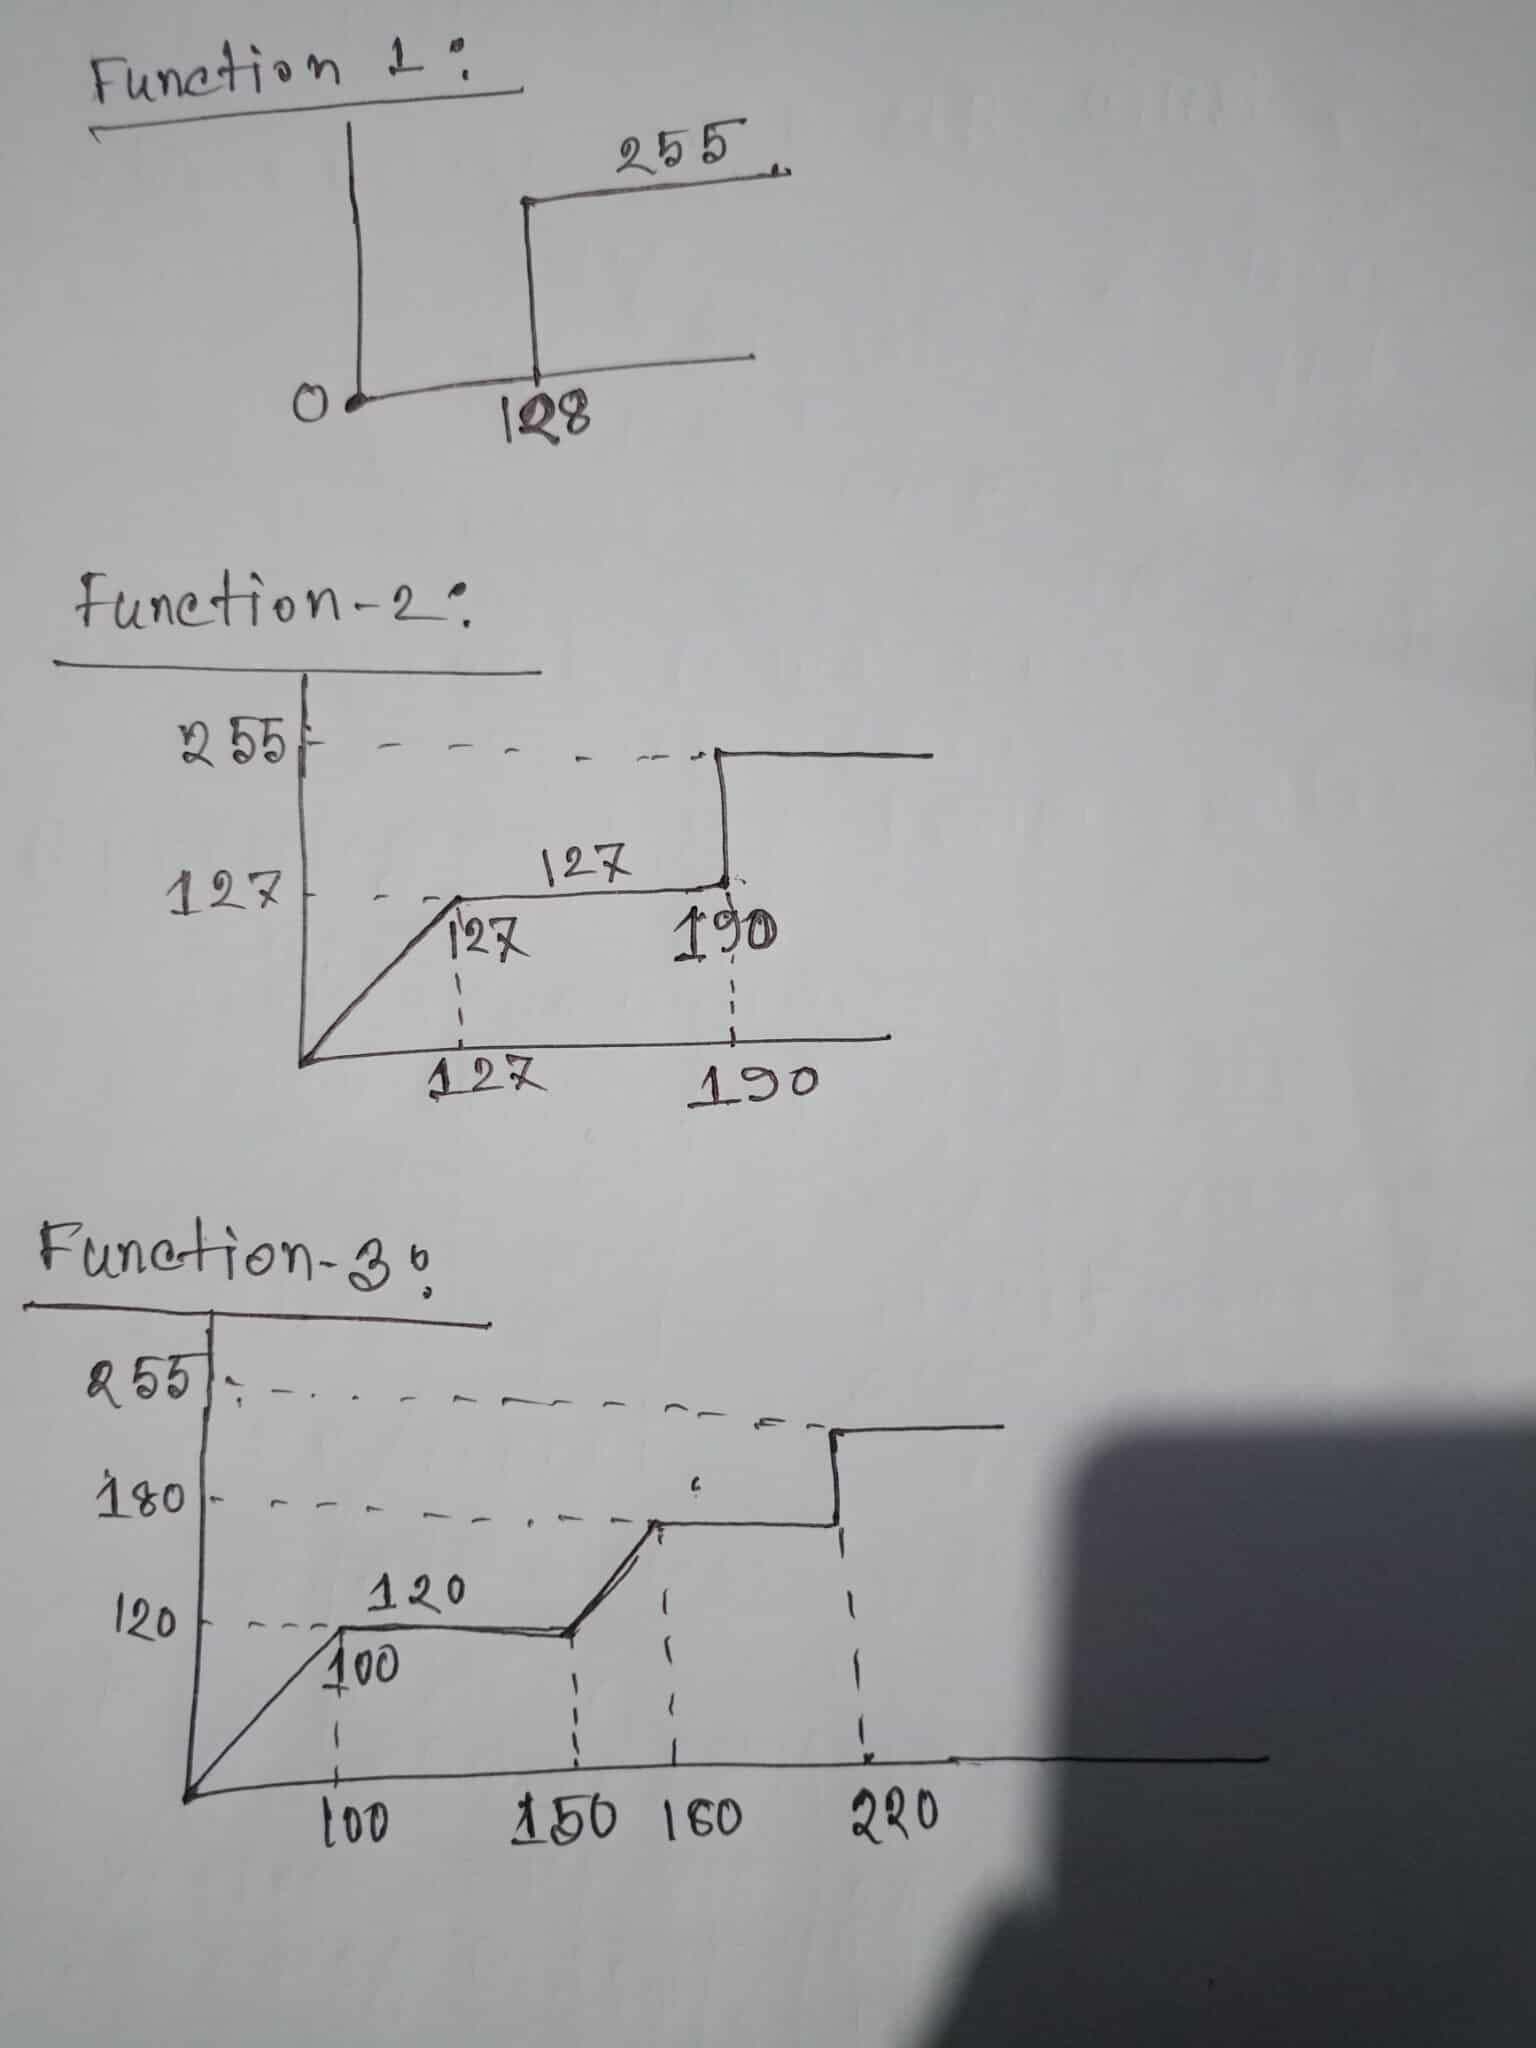 Function 1:
255
0
128
Function-2:
255
127
127
127
190
127
190
Function-3:
255
180
120
120
100
100
150
220